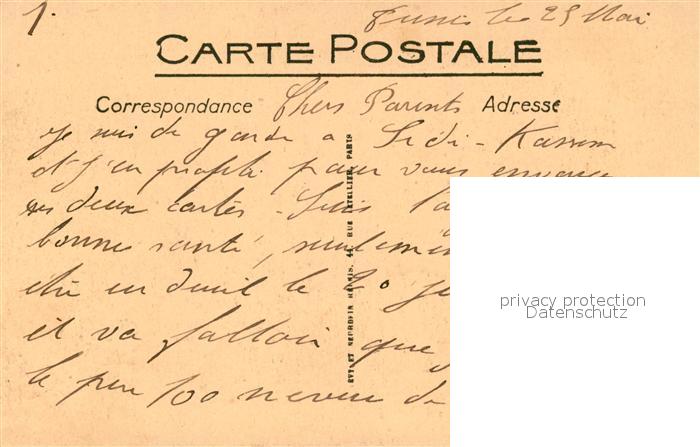 1.
Tunis le 25 Mai
CARTE POSTALE
Correspondance Chers Parents Adresse
je suis de garde a Sidi-Kassem
et j'en profite pour vous envoyer
deux cartes - Suis
bonne santé, seulement
être en deuil le 2e
il va falloir que
le peu 100 de
LEVY ET NEURDEIN REUNIS, 44, RUE LETELLIER, PARIS
privacy protection
Datenschutz